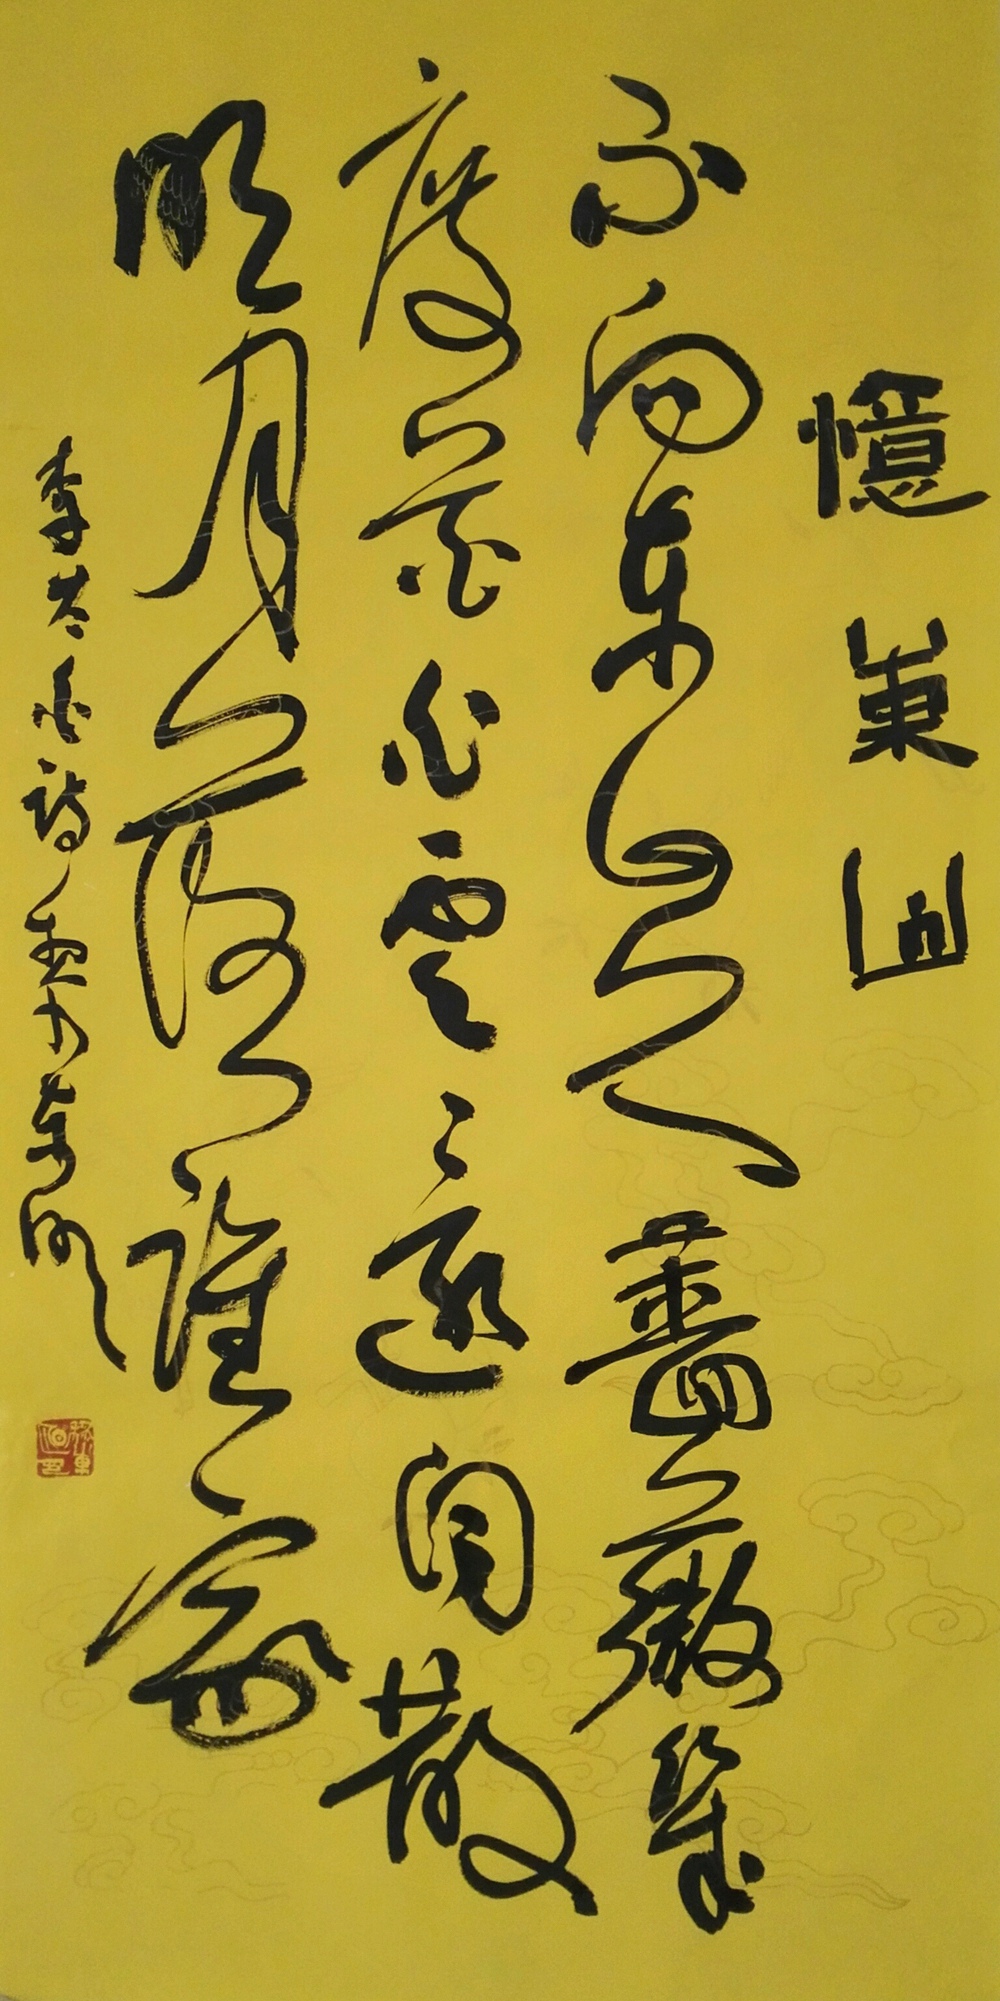 憶東山
不向東山久薔薇幾
度花白雲還自散
明月落誰家
李太白詩